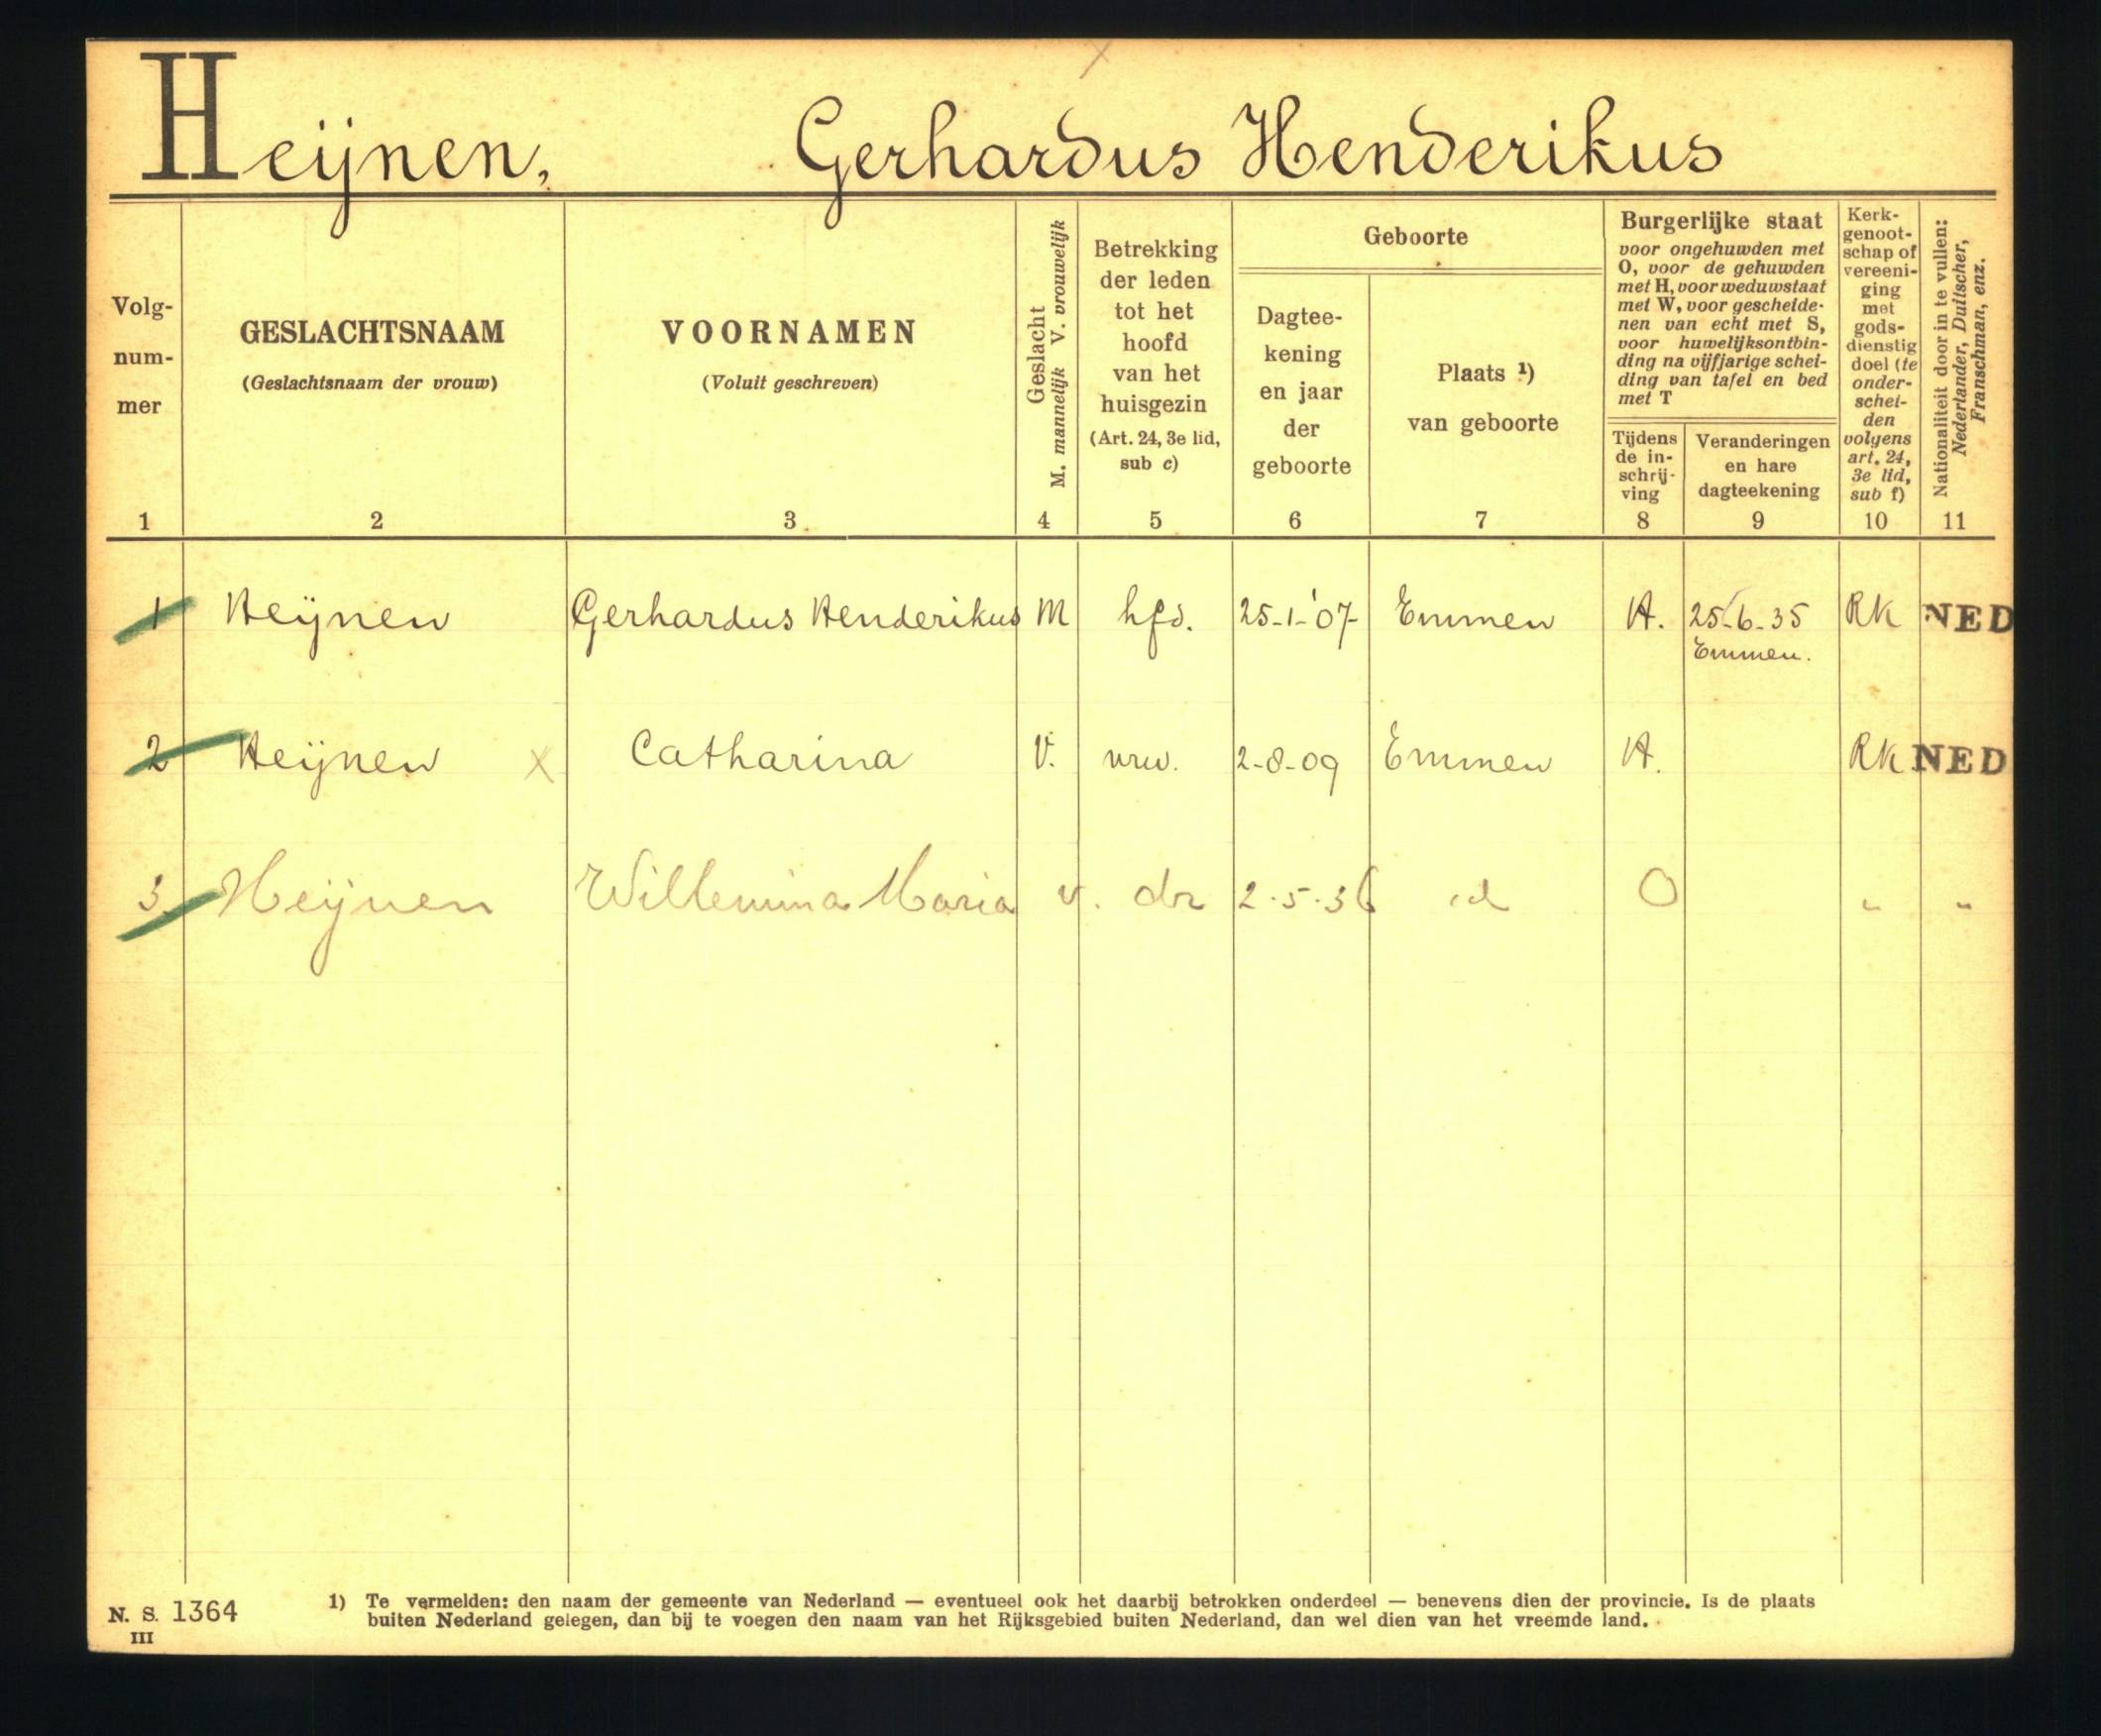 Heijnen, Gerhardus Henderikus
Volg-
num-
mer
1
GESLACHTSNAAM
(Geslachtsnaam der vrouw)
2
VOORNAMEN
(Voluit geschreven)
3
Geslacht
M. mannelijk V. vrouwelijk
4
Betrekking
der leden
tot het
hoofd
van het
huisgezin
(Art. 24, 3e lid,
sub c)
5
Geboorte
Dagtee-
kening
en jaar
der
geboorte
6
Plaats 1)
van geboorte
7
Burgerlijke staat
voor ongehuwden met
O, voor de gehuwden
met H, voor weduwstaat
met W, voor gescheide-
nen van echt met S,
voor huwelijksontbin-
ding na vijfjarige schei-
ding van tafel en bed
met T
Tijdens
de in-
schrij-
ving
8
Veranderingen
en hare
dagteekening
9
Kerk-
genoot-
schap of
vereeni-
ging
met
gods-
dienstig
doel (te
onder-
schei-
den
volgens
art. 24,
3e lid,
sub f)
10
Nationaliteit door in te vullen:
Nederlander, Duitscher,
Franschman, enz.
11
1 Heijnen Gerhardus Henderikus M hfd. 25-1-'07 Emmen H. 25-6-35 RK NED
Emmen.
2 Heijnen x Catharina V. vrw. 2-8-09 Emmen H. RK NED
3 Heijnen Willemina Maria v. dr 2.5.36 id O " "
N. S. 1364
III
1) Te vermelden: den naam der gemeente van Nederland — eventueel ook het daarbij betrokken onderdeel — benevens dien der provincie. Is de plaats
buiten Nederland gelegen, dan bij te voegen den naam van het Rijksgebied buiten Nederland, dan wel dien van het vreemde land.